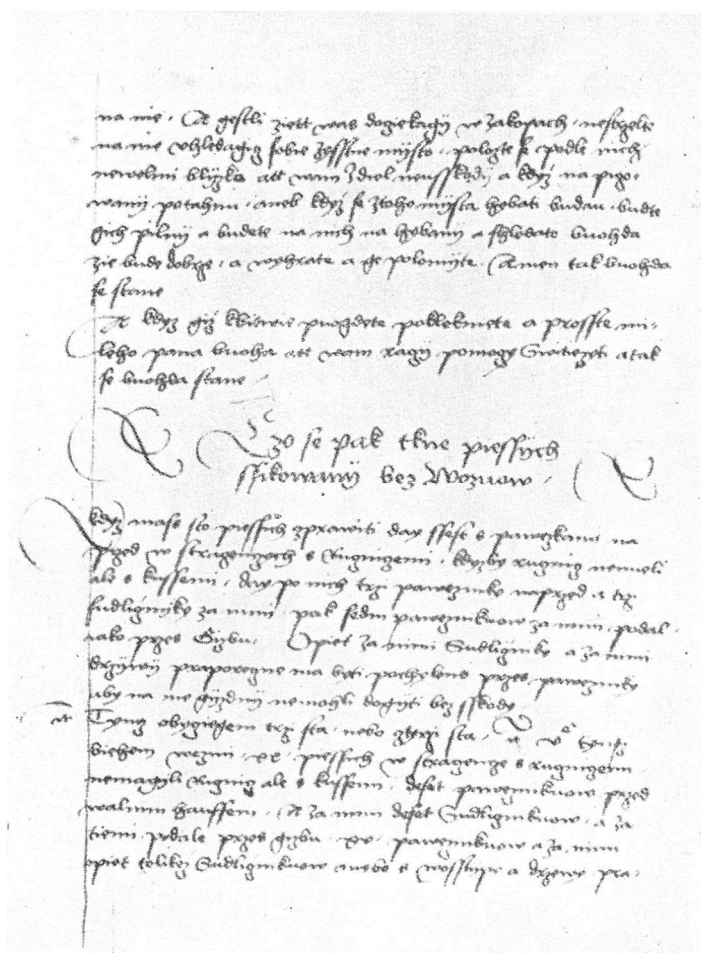 na nie. A gestli ziett was dogiekagij w zakopach. nestrzelte
na nie vhledagicz sobie zgistne mijsto. polozte se podle nich
newelmi blijzko att wam zdiel neusskodij a kdyz na pizo-
wanij potahnu. aneb kdyz se ztoho mijsta hybati budau. budte
gich pilnij a budete na nich na hybanij a shledate buohda
zie bude dobrze. a wyhrate a ge polomijte. Amen tak buohda
se stane
A kdyz giz kbitwie puogdete poklekniete a prosste mi-
leho pana buoha att wam raczij pomogy Switiezyti a tak
se buohda stane
Czo se pak tkne piessych
ssikowanij bez Wozuow.
Kdyz mass sto piessich zprawiti day ssest s pawezkami na
przed w strazenczoch s Rucznicemi. kdyzby rucznicz nemieli
ale s kussemi. day po nich trzi pawezniky naprzed a trzi
sudlicznijky za nimi. pak sedm paweznikuow za nimi. podal
iako przes Gizbu. Opiet za nimi Sudliczniky a za nimi
drzewij praporeczne ma byti pochyleno przes pawezniky
aby na nie gijzdnij nemohli dogyti bez sskody
Tymz obyczegem trzi sta. nebo cztyrzi sta. A v tymz
biehem wezmi .xx. piessich w strazencze s rucznicemi
nemagili rucznicz ale s kussemi. deset paweznikuow przed
walnim hauffem. A za nimi deset Sudlicznikuow. a za
tiemi podale przes gizbu .xx. paweznikuow a za nimi
opiet tolikez Sudlicznikuow anebo s wosstipy a drzewo pra-